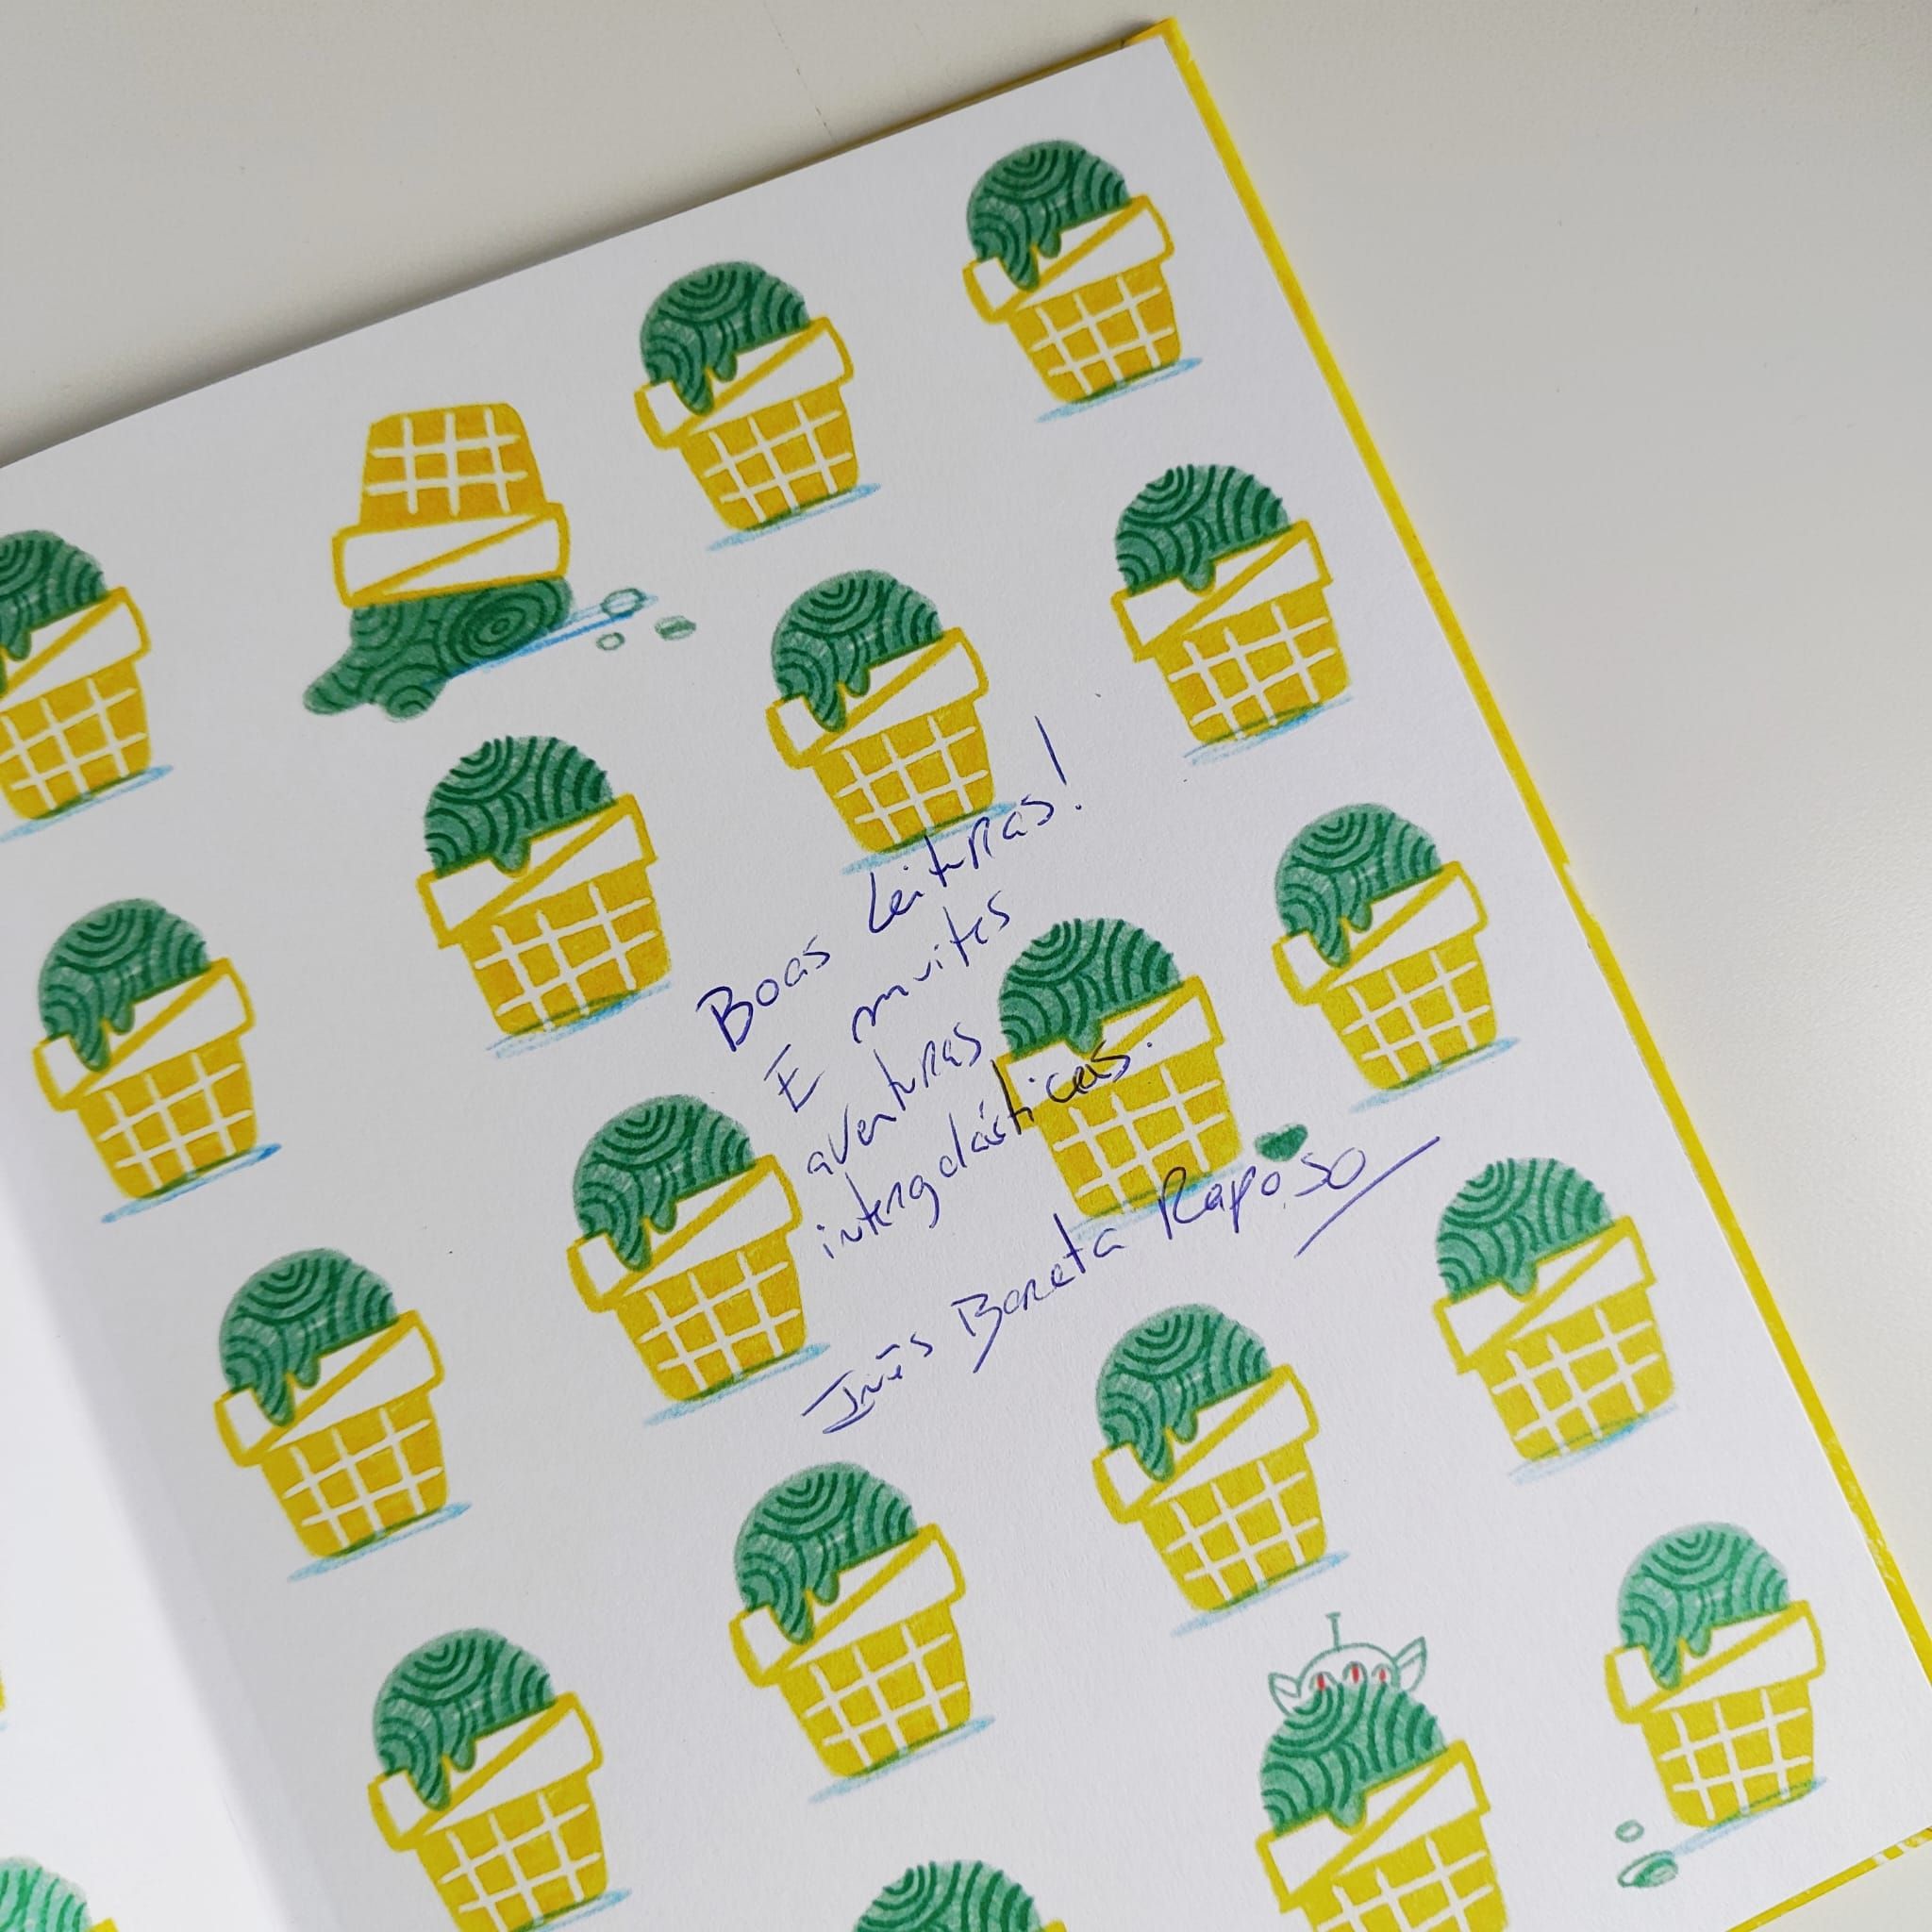 Boas Leituras!
E muitas
aventuras
intergalácticas.
Inês Barata Raposo